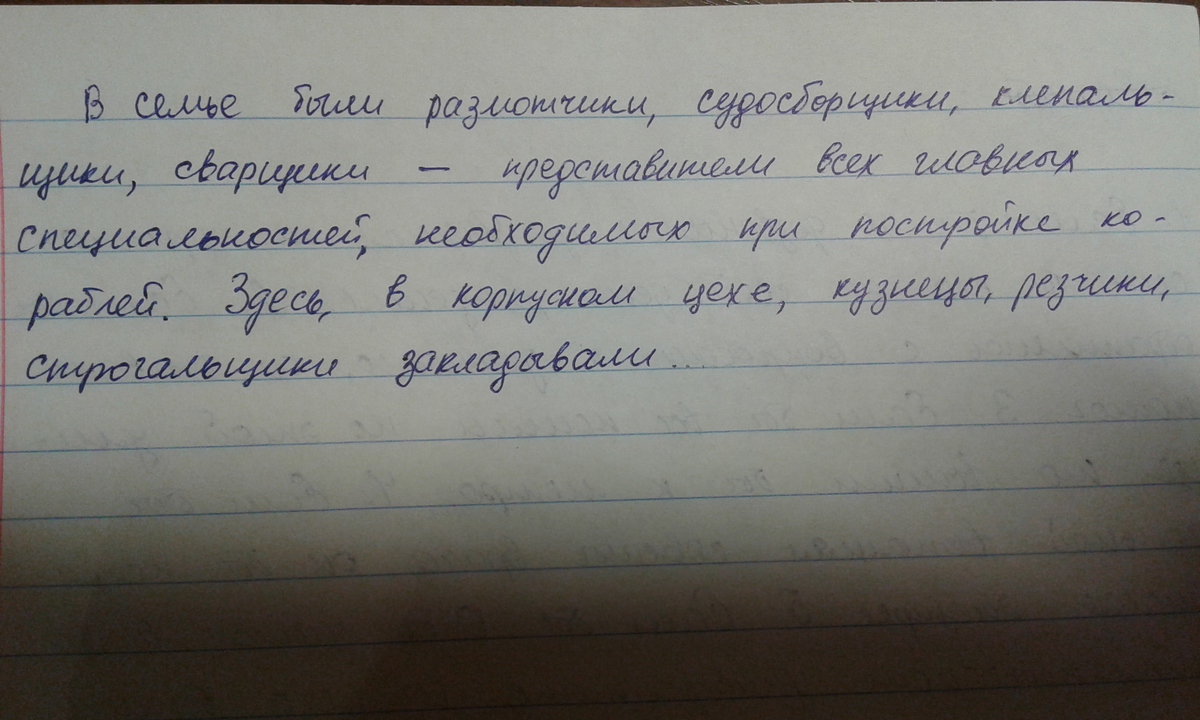 В семье были размотчики, судосборщики, клепаль-
щики, сварщики — представители всех главных
специальностей, необходимых при постройке ко-
раблей. Здесь, в корпусном цехе, кузнецы, резчики,
строгальщики закладывали...